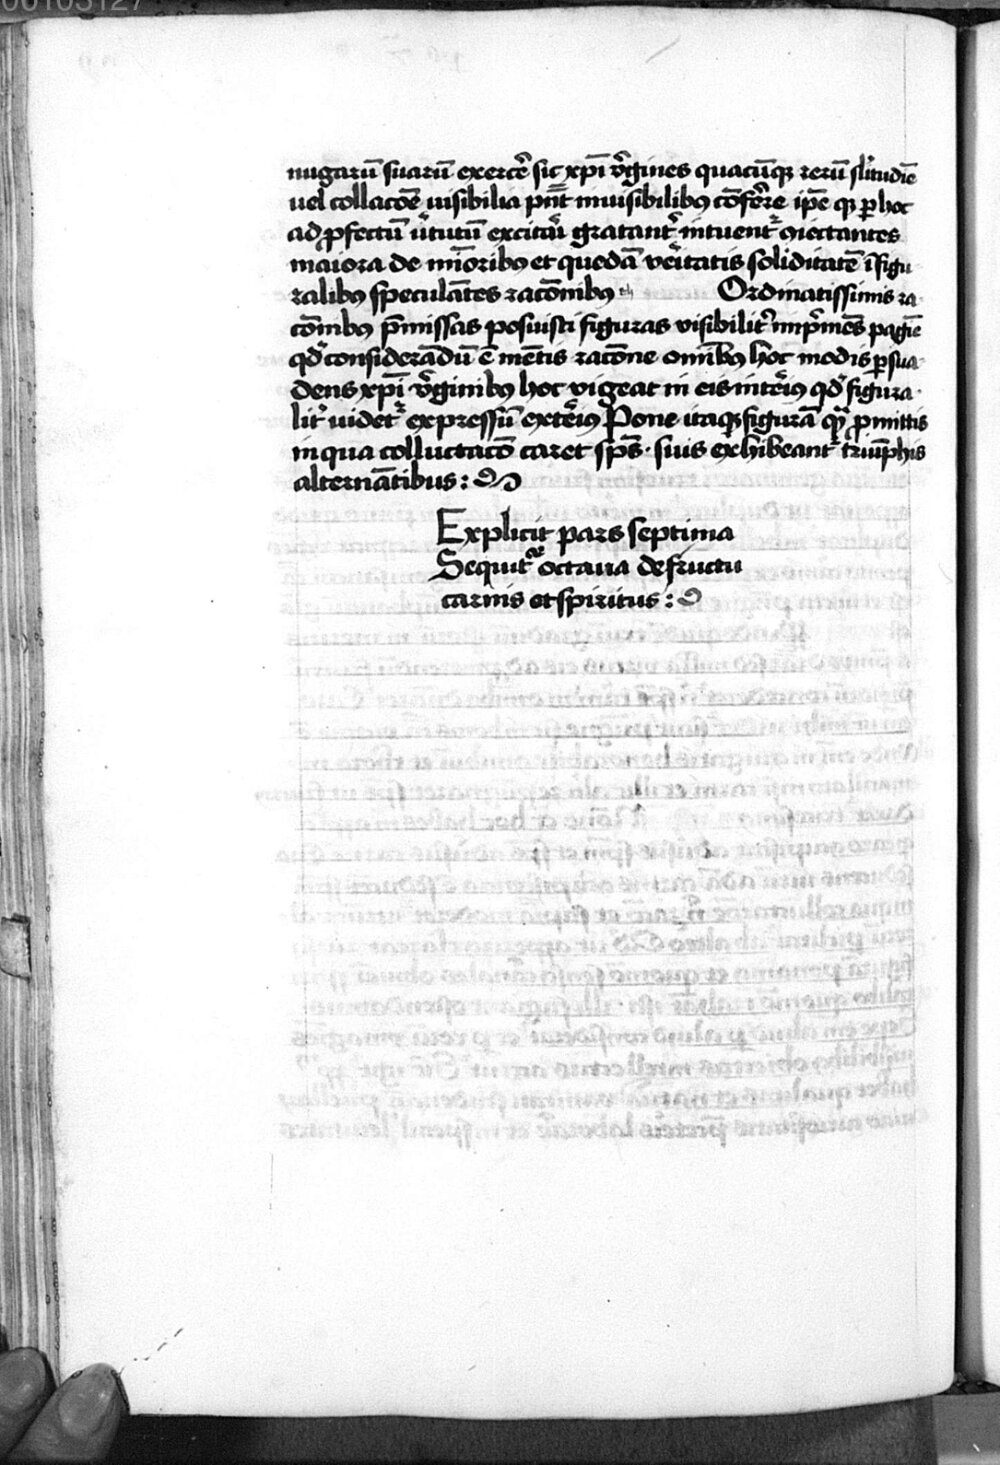 nugarū suarū exercē sic xp̄i v̓gines quacūq; rerū sl̓itudīe
uel collacōe uisibilia pn̄t inuisibilibꝰ cōferre ip̄e q; ꝑ hoc
ad ꝓfectū u̓tutū excitari gratant᷑ intuent᷑ ꝯiectantes
maiora de mīoribꝰ et quedā ve̓itatis soliditatē ī figu
ralibꝰ speculātes racōnibꝰ Ordinatissimis ra
cōnibꝰ p̄missas posuisti figuras visibilit̓ imp̓mēs pagīe
qd̓ considerādū ē mētis racōne omībꝰ hoc modis ꝑsua
dens xp̄i v̓ginibꝰ hoc vigeat in eis inte̓iꝰ qd̓ figura
lit̓ uidet᷑ expressū exte̓iꝰ Pone itaq; figurā quā ꝓmittis
in qua colluctacō caret sp̄s suis exhibeant᷑ triūphis
alternātibus :
Explicit pars septima
Sequit᷑ octaua de fructu
carnis et spiritus :